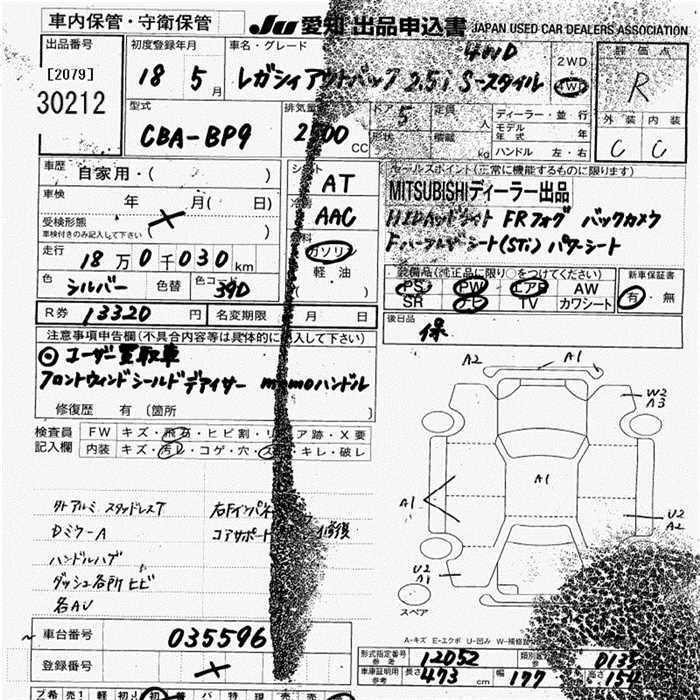 車内保管・守衛保管
JU 愛知 出品申込書 JAPAN USED CAR DEALERS ASSOCIATION
出品番号
[2079]
30212
初度登録年月
18 5月
車名・グレード
4WD
レガシィアウトバック 2.5i Sースタイル
2WD
4WD
評価点
R
外装 内装
C C
型式
CBA-BP9
排気量
2500 CC
ドア 5
定員 人
形状
積載 kg
ディーラー・並行
モデル年式 年
ハンドル 左・右
車歴 自家用・( )
車検 年 月( 日)
受検形態
車検付きのみ記入して下さい ( )
走行
18万0千030km
色 シルバー 色替
色コード 39D
シフト
AT
冷房
AAC
燃料
ガソリン
軽・油
( )
セールスポイント(正常に機能するものに限ります)
MITSUBISHIディーラー出品
HIDヘッドライト FRフォグ バックカメラ
Fハーフレザーシート(STi) パワーシート
装備品(純正品に限り○をつけてください)
PS PW エアB AW
SR ナビ TV カワシート
新車保証書
有・無
R券 13320 円
名変期限 月 日
後日品
保
注意事項申告欄(不具合内容等は具体的に記入して下さい)
◎ユーザー買取車
フロントウィンドシールドデアイサー momoハンドル
修復歴 有 〔箇所 〕
検査員記入欄
FW キズ・飛石・ヒビ割・リペア跡・X要
内装 キズ・汚レ・コゲ・穴・スレ・キレ・破レ
外アルミ スタッドレスT
DミラーA
ハンドルハゲ
ダッシュ各所ヒビ
各AU
右Fインパネ
コアサポート 修復
A2 A1
W2
A3
A1
A1
U2
A2
U2
A1
スペア
A-キズ E-エクボ U-凹み W-補修
車台番号 035596
登録番号
型式指定番号
参考
12052
類別区分
参考
0135
車庫証明用
参考
長さ 473 cm 幅 177 高さ 154